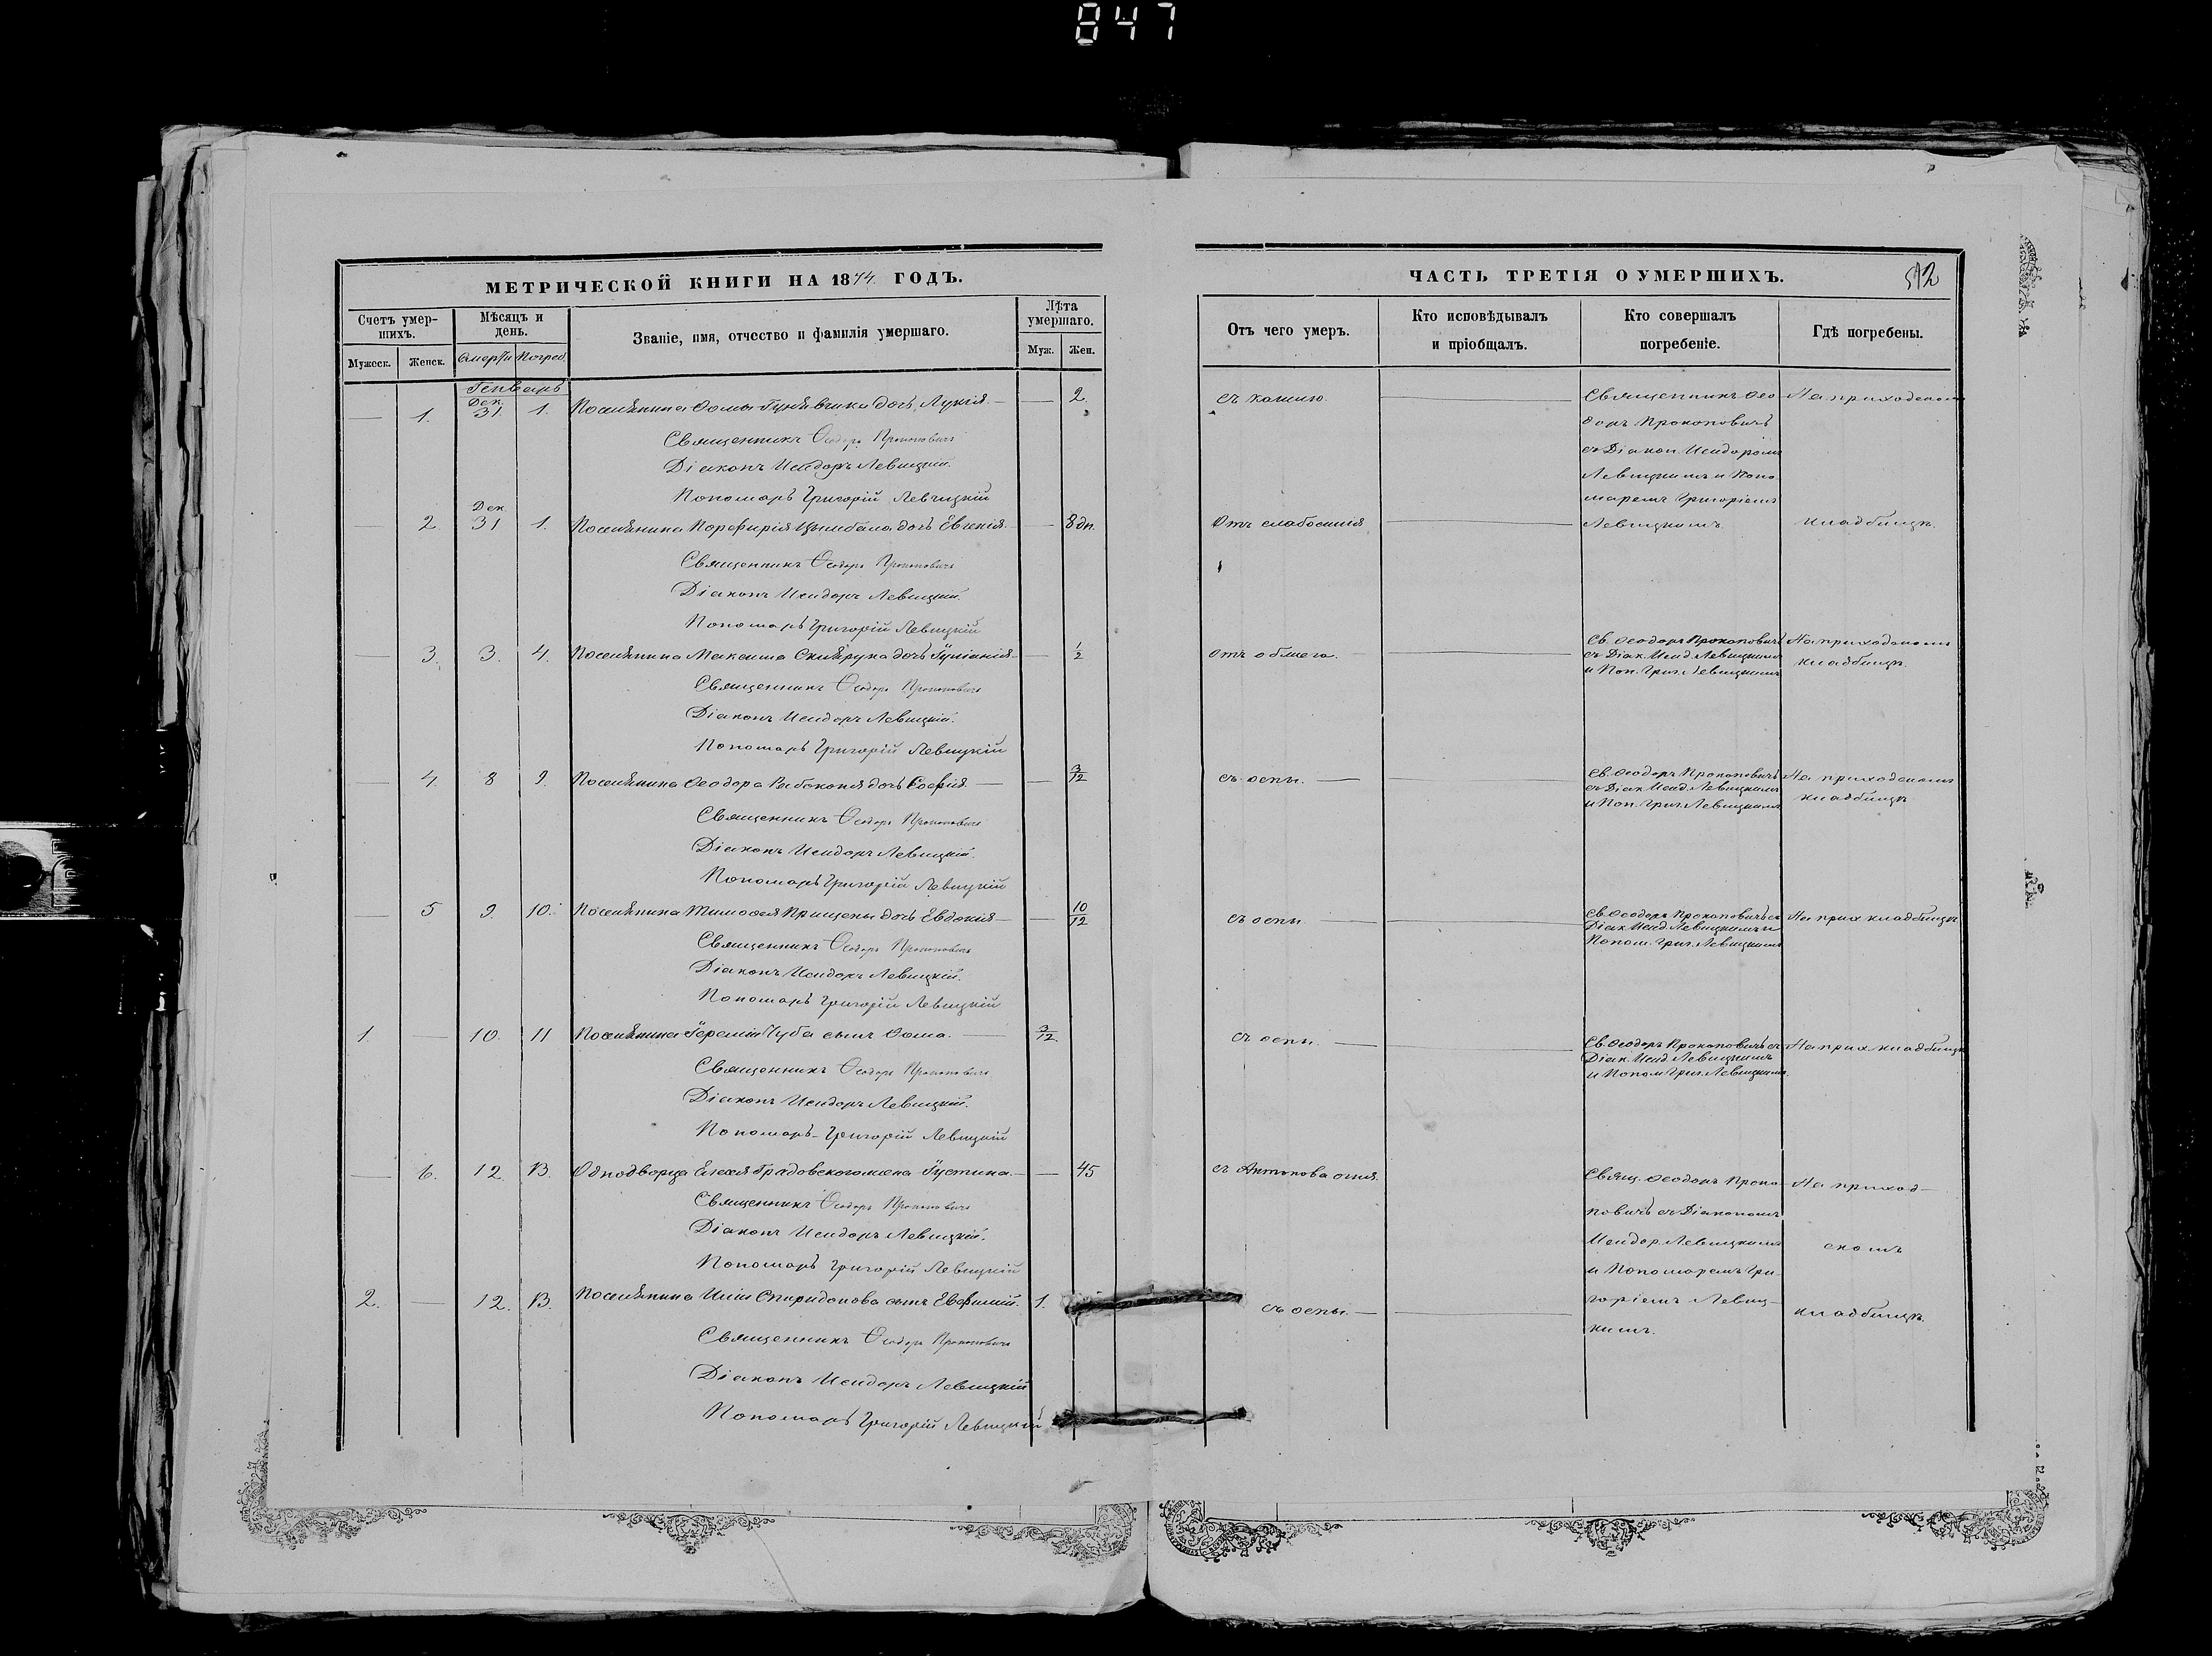 847
МЕТРИЧЕСКОЙ КНИГИ НА 1874. ГОДЪ.
Счетъ умер-
шихъ.
Мужеск. Женск.
Мѣсяцъ и
день.
Смерти Погреб.
Званіе, имя, отчество и фамилія умершаго.
Лѣта
умершаго.
Муж. Жен.
Генварь
Дек.
1. 31 1. Поселянина Ѳомы дочь Лукія. 2.
Священникъ Ѳеодоръ Прокоповичъ
Діаконъ Исидоръ Левицкій.
Пономарь Григорій Левицкій
Дек.
2 31 1. Поселянина Порфирія Цымбала дочь Евгенія. 8 дн.
Священникъ Ѳеодоръ Прокоповичъ
Діаконъ Исидоръ Левицкій.
Пономарь Григорій Левицкій
3. 3. 4. Поселянина Максима дочь Іуліанія 1/2
Священникъ Ѳеодоръ Прокоповичъ
Діаконъ Исидоръ Левицкій.
Пономарь Григорій Левицкій
4. 8 9. Поселянина Ѳеодора дочь Софія 3/12
Священникъ Ѳеодоръ Прокоповичъ
Діаконъ Исидоръ Левицкій.
Пономарь Григорій Левицкій
5 9. 10. Поселянина Тимоѳея Прищепы дочь Евдокія 10/12
Священникъ Ѳеодоръ Прокоповичъ
Діаконъ Исидоръ Левицкій.
Пономарь Григорій Левицкій
1. 10. 11 Поселянина Іереміи Чуба сынъ Ѳома. 3/12
Священникъ Ѳеодоръ Прокоповичъ
Діаконъ Исидоръ Левицкій.
Пономарь Григорій Левицкій
6. 12. 13. Однодворца Градовскаго жена Іустина. 45
Священникъ Ѳеодоръ Прокоповичъ
Діаконъ Исидоръ Левицкій.
Пономарь Григорій Левицкій
2. 12. 13. Поселянина Иліи Спиридонова сынъ Евфимій. 1.
Священникъ Ѳеодоръ Прокоповичъ
Діаконъ Исидоръ Левицкій
Пономарь Григорій Левицкій
ЧАСТЬ ТРЕТІЯ О УМЕРШИХЪ.
512
Отъ чего умеръ.
Кто исповѣдывалъ
и пріобщалъ.
Кто совершалъ
погребеніе.
Гдѣ погребены.
съ кашлю. Священникъ Ѳео- На приходскомъ
доръ Прокоповичъ
съ Діакон. Исидоромъ
Левицкимъ и Поно-
маремъ Григоріемъ
Отъ слабосилія Левицкимъ. кладбищѣ.
отъ Св. Ѳеодоръ Прокоповичъ На приходскомъ
съ Діак. Исид. Левицкимъ кладбищѣ.
и Пон. Григ. Левицкимъ
съ оспы. Св. Ѳеодоръ Прокоповичъ На приходскомъ
съ Діак. Исид. Левицкимъ кладбищѣ
и Пон. Григ. Левицкимъ
съ оспы Св. Ѳеодоръ Прокоповичъ съ На прих кладбищѣ
Діак. Исид. Левицкимъ и
Поном. Григ. Левицкимъ
съ оспы. Св. Ѳеодоръ Прокоповичъ съ На прих кладбищѣ
Діак. Исид. Левицкимъ
и Поном Григ. Левицкимъ.
съ Антонова огня. Свящ. Ѳеодоръ Проко- На приход-
повичъ съ Діакономъ
Исидор. Левицкимъ скомъ
и Пономаремъ Гри-
съ оспы. горіемъ Левиц- кладбищѣ.
кимъ.